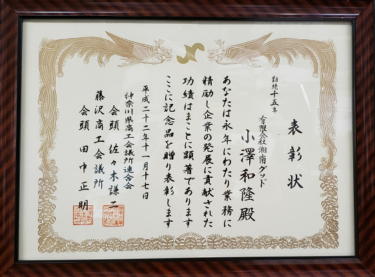 表彰状
勤続十五年
有限会社湘南グッド
小澤和隆殿
あなたは永年にわたり業務に
精励し企業の発展に貢献された
功績はまことに顕著であります
ここに記念品を贈り表彰します
平成二十二年十一月十七日
神奈川県商工会議所連合会
会頭 佐々木謙二
藤沢商工会議所
会頭 田中正明